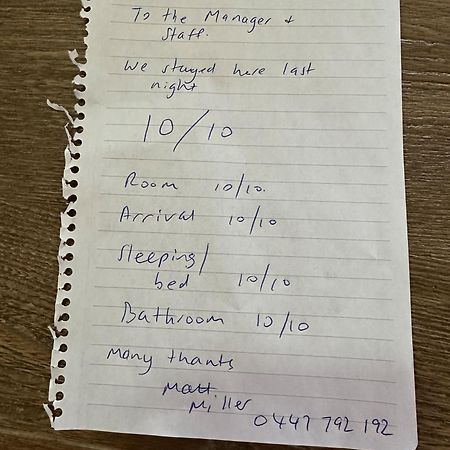 To the Manager &
Staff.
We stayed here last
night
10/10
Room 10/10.
Arrival 10/10
Sleeping/
bed 10/10
Bathroom 10/10
Many thanks
Matt
Miller
0447 792 192